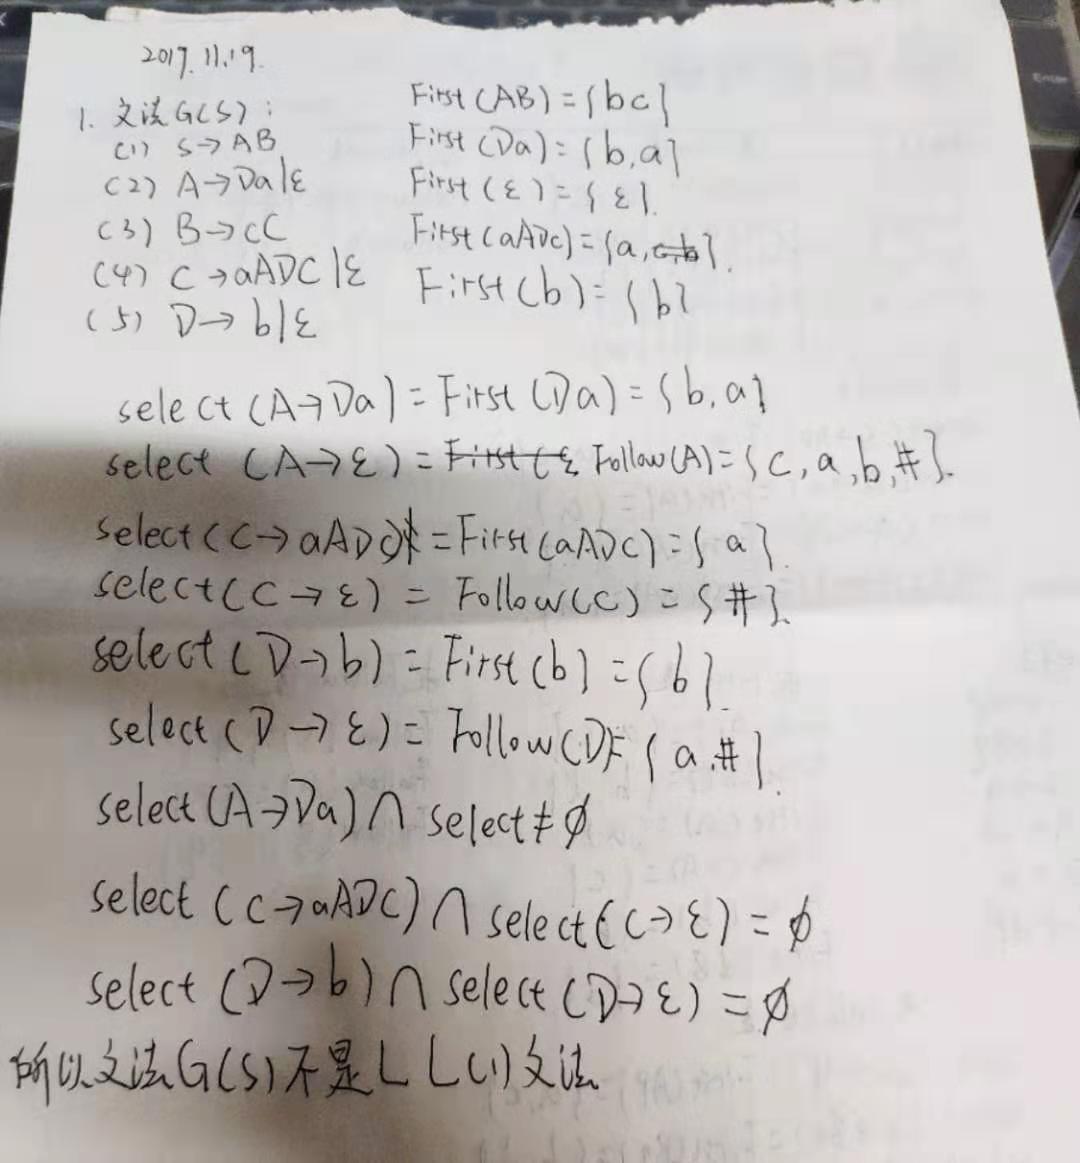 2017.11.19.
1. 文法G(S):
(1) S→AB
(2) A→Da|ε
(3) B→cC
(4) C→aADC|ε
(5) D→b|ε
First(AB)={bc}
First(Da)={b,a}
First(ε)={ε}.
First(aADC)={a, }.
First(b)={b}
select(A→Da)=First(Da)={b.a}
select(A→ε)=First(ε Follow(A)={c,a,b,#}.
select(C→aADC)=First(aADC)={a}.
select(C→ε)=Follow(C)={#}.
select(D→b)=First(b)={b}.
select(D→ε)=Follow(D)={a.#}.
select(A→Da)∩select≠∅
select(C→aADC)∩select(C→ε)=∅
select(D→b)∩select(D→ε)=∅
所以文法G(S)不是LL(1)文法